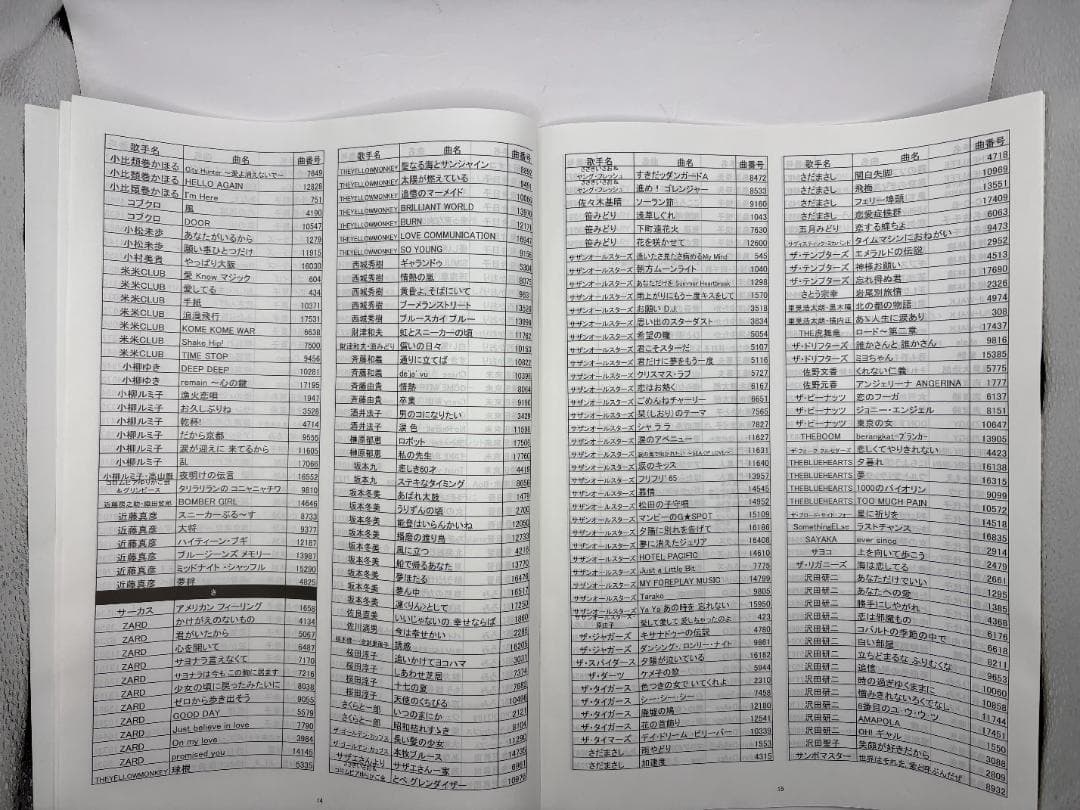 歌手名 曲名 曲番号
小比類巻かほる City Hunter ～愛よ消えないで～ 7849
小比類巻かほる HELLO AGAIN 12828
小比類巻かほる I'm Here 751
コブクロ 風 4190
コブクロ DOOR 10547
小松未歩 あなたがいるから 1279
小松未歩 願い事ひとつだけ 11915
小村美貴 やっぱり大阪 16030
米米CLUB 愛 Know マジック 604
米米CLUB 愛してる 424
米米CLUB 手紙 10371
米米CLUB 浪漫飛行 17531
米米CLUB KOME KOME WAR 6638
米米CLUB Shake Hip! 7500
米米CLUB TIME STOP 9456
小柳ゆき DEEP DEEP 10281
小柳ゆき remain ～心の鍵 17195
小柳ルミ子 漁火恋唄 1947
小柳ルミ子 お久しぶりね 3526
小柳ルミ子 乾杯! 4714
小柳ルミ子 だから京都 9555
小柳ルミ子 涙が迎えに 来てるから 11605
小柳ルミ子 乱 17066
夜明けの伝言 16552
タリラリランの コニャニャチワ 9810
BOMBER GIRL 14646
近藤真彦 スニーカーぶる～す 8733
近藤真彦 大将 9377
近藤真彦 ハイティーン・ブギ 12187
近藤真彦 ブルージーンズ メモリー 13987
近藤真彦 ミッドナイト・シャッフル 15290
近藤真彦 夢絆 4825
さ
サーカス アメリカン フィーリング 1658
ZARD かけがえのないもの 4134
ZARD 君がいたから 5067
ZARD 心を開いて 6487
ZARD サヨナラ言えなくて 7170
ZARD サヨナラは今も この胸に居ます 7216
ZARD 少女の頃に戻ったみたいに 8038
ZARD ゼロから歩き出そう 9055
ZARD GOOD DAY 5579
ZARD Just believe in love 7790
ZARD On my love 3984
ZARD promised you 14145
THEYELLOWMONKEY 球根 5335
14
歌手名 曲名 曲番号
THEYELLOWMONKEY 聖なる海とサンシャイン 8892
THEYELLOWMONKEY 太陽が燃えている
THEYELLOWMONKEY 追憶のマーメイド
THEYELLOWMONKEY BRILLIANT WORLD
THEYELLOWMONKEY BURN
THEYELLOWMONKEY LOVE COMMUNICATION
THEYELLOWMONKEY SO YOUNG
西城秀樹 ギャランドゥ
西城秀樹 情熱の嵐
西城秀樹 黄昏よ、そばにいて
西城秀樹 ブーメランストリート
西城秀樹 ブルースカイ ブルー
財津和夫 虹とスニーカーの頃
償いの日々
斉藤和義 通りに立てば
斉藤和義 deja' vu
斉藤由貴 情熱
斉藤由貴 卒業
酒井法子 男のコになりたい
酒井法子 涙色
榊原郁恵 ロボット
榊原郁恵 私の先生
坂本九 悲しき60才
坂本九 ステキなタイミング
坂本冬美 あばれ太鼓
坂本冬美 うりずんの頃
坂本冬美 能登はいらんかいね
坂本冬美 播磨の渡り鳥
坂本冬美 風に立つ
坂本冬美 船で帰るあなた
坂本冬美 夢ほたる
坂本冬美 夢ん中
坂本冬美 凛(りん)として
佐良直美 いいじゃないの 幸せならば
佐川満男 今は幸せかい
誘惑
桜田淳子 追いかけてヨコハマ
桜田淳子 しあわせ芝居
桜田淳子 十七の夏
桜田淳子 天使のくちびる
さくらと一郎 いつのまにか
さくらと一郎 昭和枯れすすき
ザ・ゴールデン・カップス 長い髪の少女
ザ・ゴールデン・カップス 本牧ブルース
サザエさんより サザエさん一家
とべ グレンダイザー
歌手名 曲名 曲番号
すきだッダンガードA 8472
進め! ゴレンジャー 8533
佐々木基晴 ソーラン節 9160
笹みどり 浅草しぐれ 1043
笹みどり 下町遠花火 7630
笹みどり 花を咲かせて 12600
サザンオールスターズ 逢いたさ見たさ病めるMy Mind 545
サザンオールスターズ 朝方ムーンライト 1040
サザンオールスターズ あなただけを Summer Heartbreak 1298
サザンオールスターズ 雨上がりにもう一度キスをして 1570
サザンオールスターズ お願い D.J 3518
サザンオールスターズ 思い出のスターダスト 3834
サザンオールスターズ 希望の轍 5034
サザンオールスターズ 君こそスターだ 5107
サザンオールスターズ 君だけに夢をもう一度 5116
サザンオールスターズ クリスマス・ラブ 5727
サザンオールスターズ 恋はお熱く 6167
サザンオールスターズ ごめんねチャーリー 6651
サザンオールスターズ 栞(しおり)のテーマ 7565
サザンオールスターズ シャ ラ ラ 7827
サザンオールスターズ 涙のアベニュー 11627
サザンオールスターズ 11631
サザンオールスターズ 涙のキッス 11640
サザンオールスターズ フリフリ'65 13957
サザンオールスターズ 慕情 14545
サザンオールスターズ 松田の子守唄 14952
サザンオールスターズ マンピーのG★SPOT 15109
サザンオールスターズ 夕陽に別れを告げて 16186
サザンオールスターズ 夢に消えたジュリア 16408
サザンオールスターズ HOTEL PACIFIC 14610
サザンオールスターズ Just a Little Bit 7775
サザンオールスターズ MY FOREPLAY MUSIC 14799
サザンオールスターズ Tarako 9805
サザンオールスターズ Ya Ya あの時を 忘れない 15950
愛して愛して 愛しちゃったのよ 423
ザ・ジャガーズ キサナドゥーの伝説 4780
ザ・ジャガーズ ダンシング・ロンリー・ナイト 9861
ザ・スパイダース 夕陽が泣いている 16182
ザ・ダーツ ケメ子の歌 5944
ザ・タイガース 色つきの女で いてくれよ 2310
ザ・タイガース シー・シー・シー 7458
ザ・タイガース 廃墟の鳩 12180
ザ・タイガース 花の首飾り 12541
ザ・タイマーズ デイ・ドリーム・ビリーバー 10339
さだまさし 雨やどり 1553
さだまさし 加速度 4315
15
歌手名 曲名 曲番号
さだまさし 関白失脚 4718
さだまさし 飛梅 10969
さだまさし フェリー埠頭 13551
さだまさし 恋愛症候群 17409
五月みどり 恋する蝶もよ 6063
サディスティック・ミカバンド タイムマシンにおねがい 9473
ザ・テンプターズ エメラルドの伝説 2952
ザ・テンプターズ 神様お願い 4513
ザ・テンプターズ 忘れ得ぬ君 17690
さとう宗幸 岩尾別旅情 2326
北の都の物語 4974
あゝ人生に涙あり 308
THE虎舞竜 ロード～第二章 17437
ザ・ドリフターズ 誰かさんと 誰かさん 9816
ザ・ドリフターズ ミヨちゃん 15385
佐野文香 くれない仁義 5771
佐野元春 アンジェリーナ ANGERINA 1777
ザ・ピーナッツ 恋のフーガ 6137
ザ・ピーナッツ ジョニー・エンジェル 8151
ザ・ピーナッツ 東京の女 10647
THEBOOM berangkat-ブランカ- 13905
悲しくてやりきれない 4423
THEBLUEHEARTS 夕暮れ 16138
THEBLUEHEARTS 夢 16315
THEBLUEHEARTS 1000のバイオリン 9099
THEBLUEHEARTS TOO MUCH PAIN 10572
ザ・ブロード・サイド・フォー 星に祈りを 14518
SomethingELse ラストチャンス 16835
SAYAKA ever since 2914
サヨコ 上を向いて歩こう 2479
ザ・リガニーズ 海は恋してる 2661
沢田研二 あなただけでいい 1295
沢田研二 あなたへの愛 1385
沢田研二 勝手にしやがれ 4368
沢田研二 恋は邪魔もの 6176
沢田研二 コバルトの季節の中で 6618
沢田研二 白い部屋 8211
沢田研二 立ちどまるな ふりむくな 9653
沢田研二 追憶 10060
沢田研二 時の過ぎゆくままに 10858
沢田研二 憎みきれないろくでなし 11744
沢田研二 6番目のユ・ウ・ウ・ツ 17451
沢田研二 AMAPOLA 1550
沢田研二 OH!ギャル 3088
沢田聖子 笑顔が好きだから 2809
サンボマスター 世界はそれを 愛と呼ぶんだぜ 8932